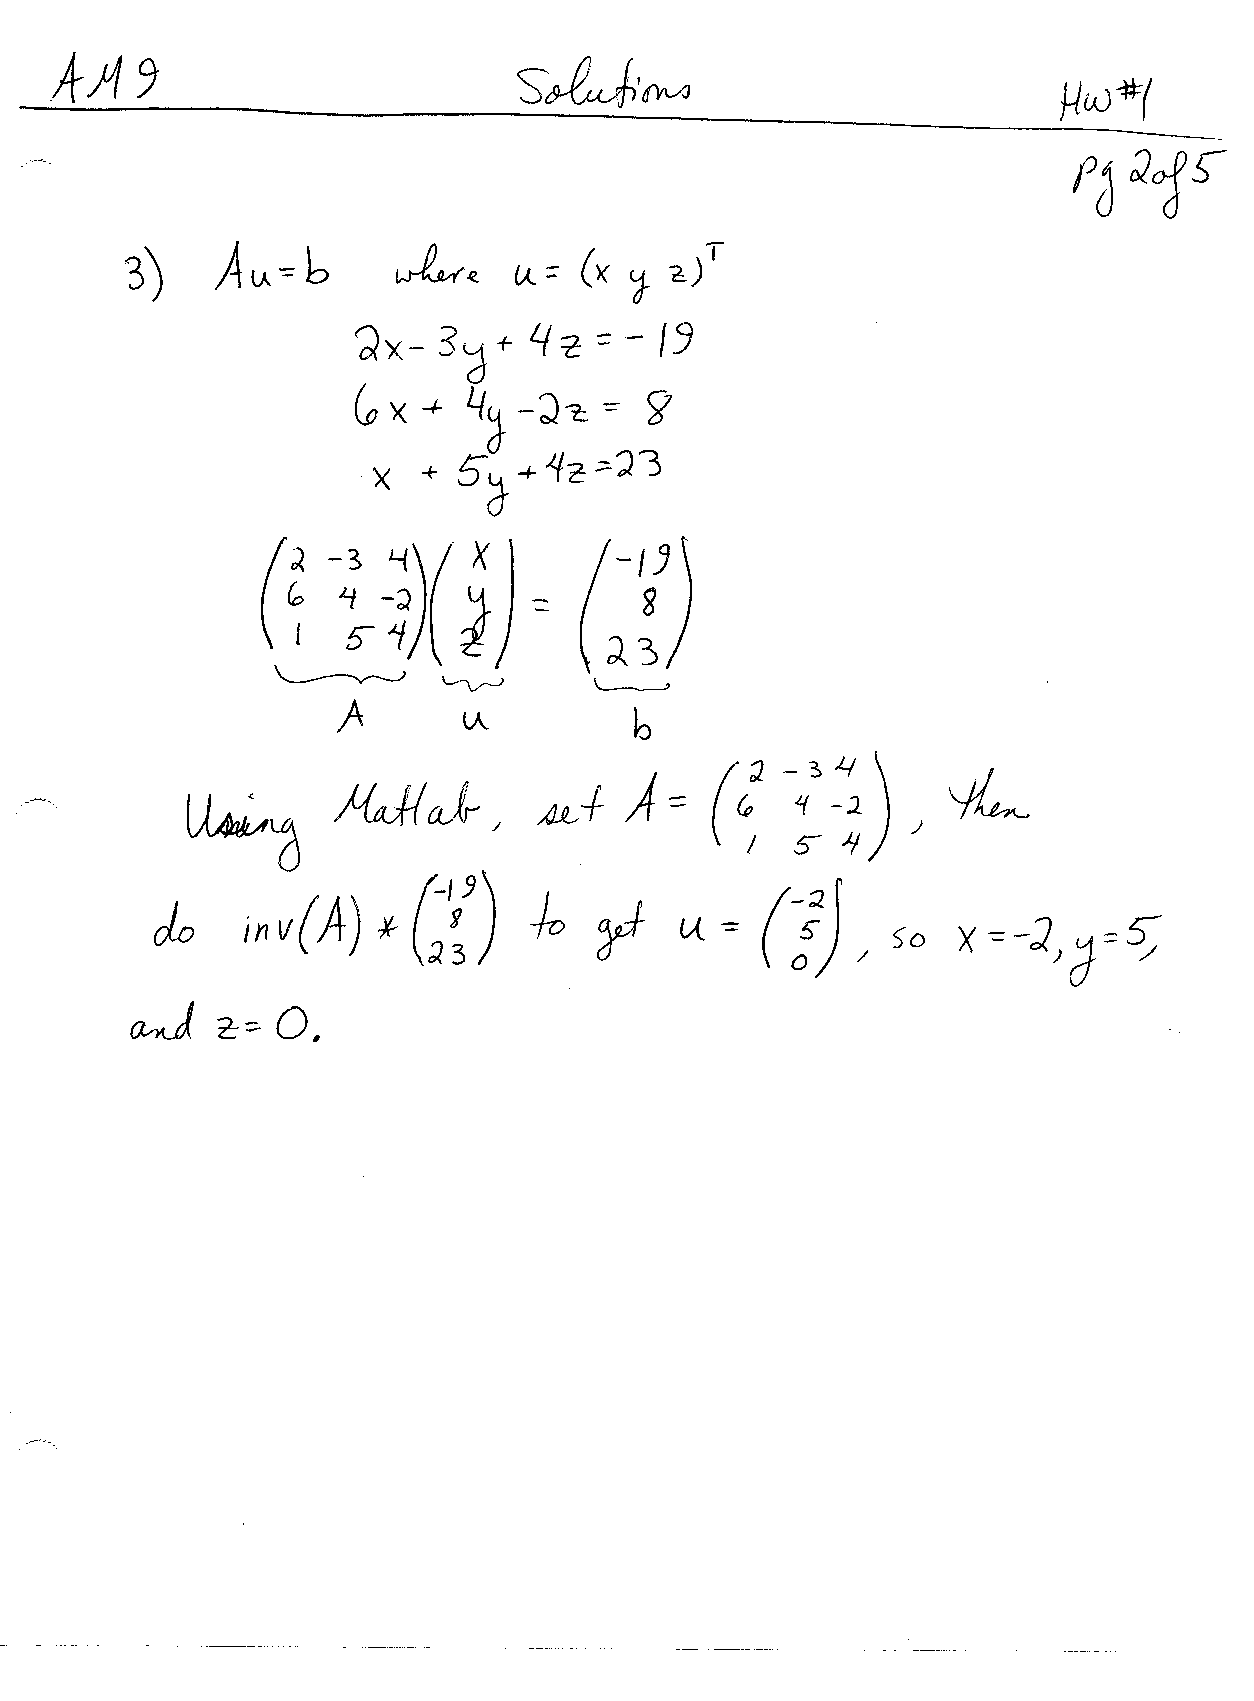 AM9 Solutions HW#1
pg 2 of 5
3) Au=b where u = (x y z)ᵀ
2x-3y+4z=-19
6x+4y-2z=8
x+5y+4z=23
(2 -3 4) (x) = (-19)
(6 4 -2) (y) (8)
(1 5 4) (z) (23)
A u b
Using Matlab, set A = (2 -3 4; 6 4 -2; 1 5 4), then
do inv(A) * (-19; 8; 23) to get u = (-2; 5; 0), so x=-2, y=5,
and z=0.